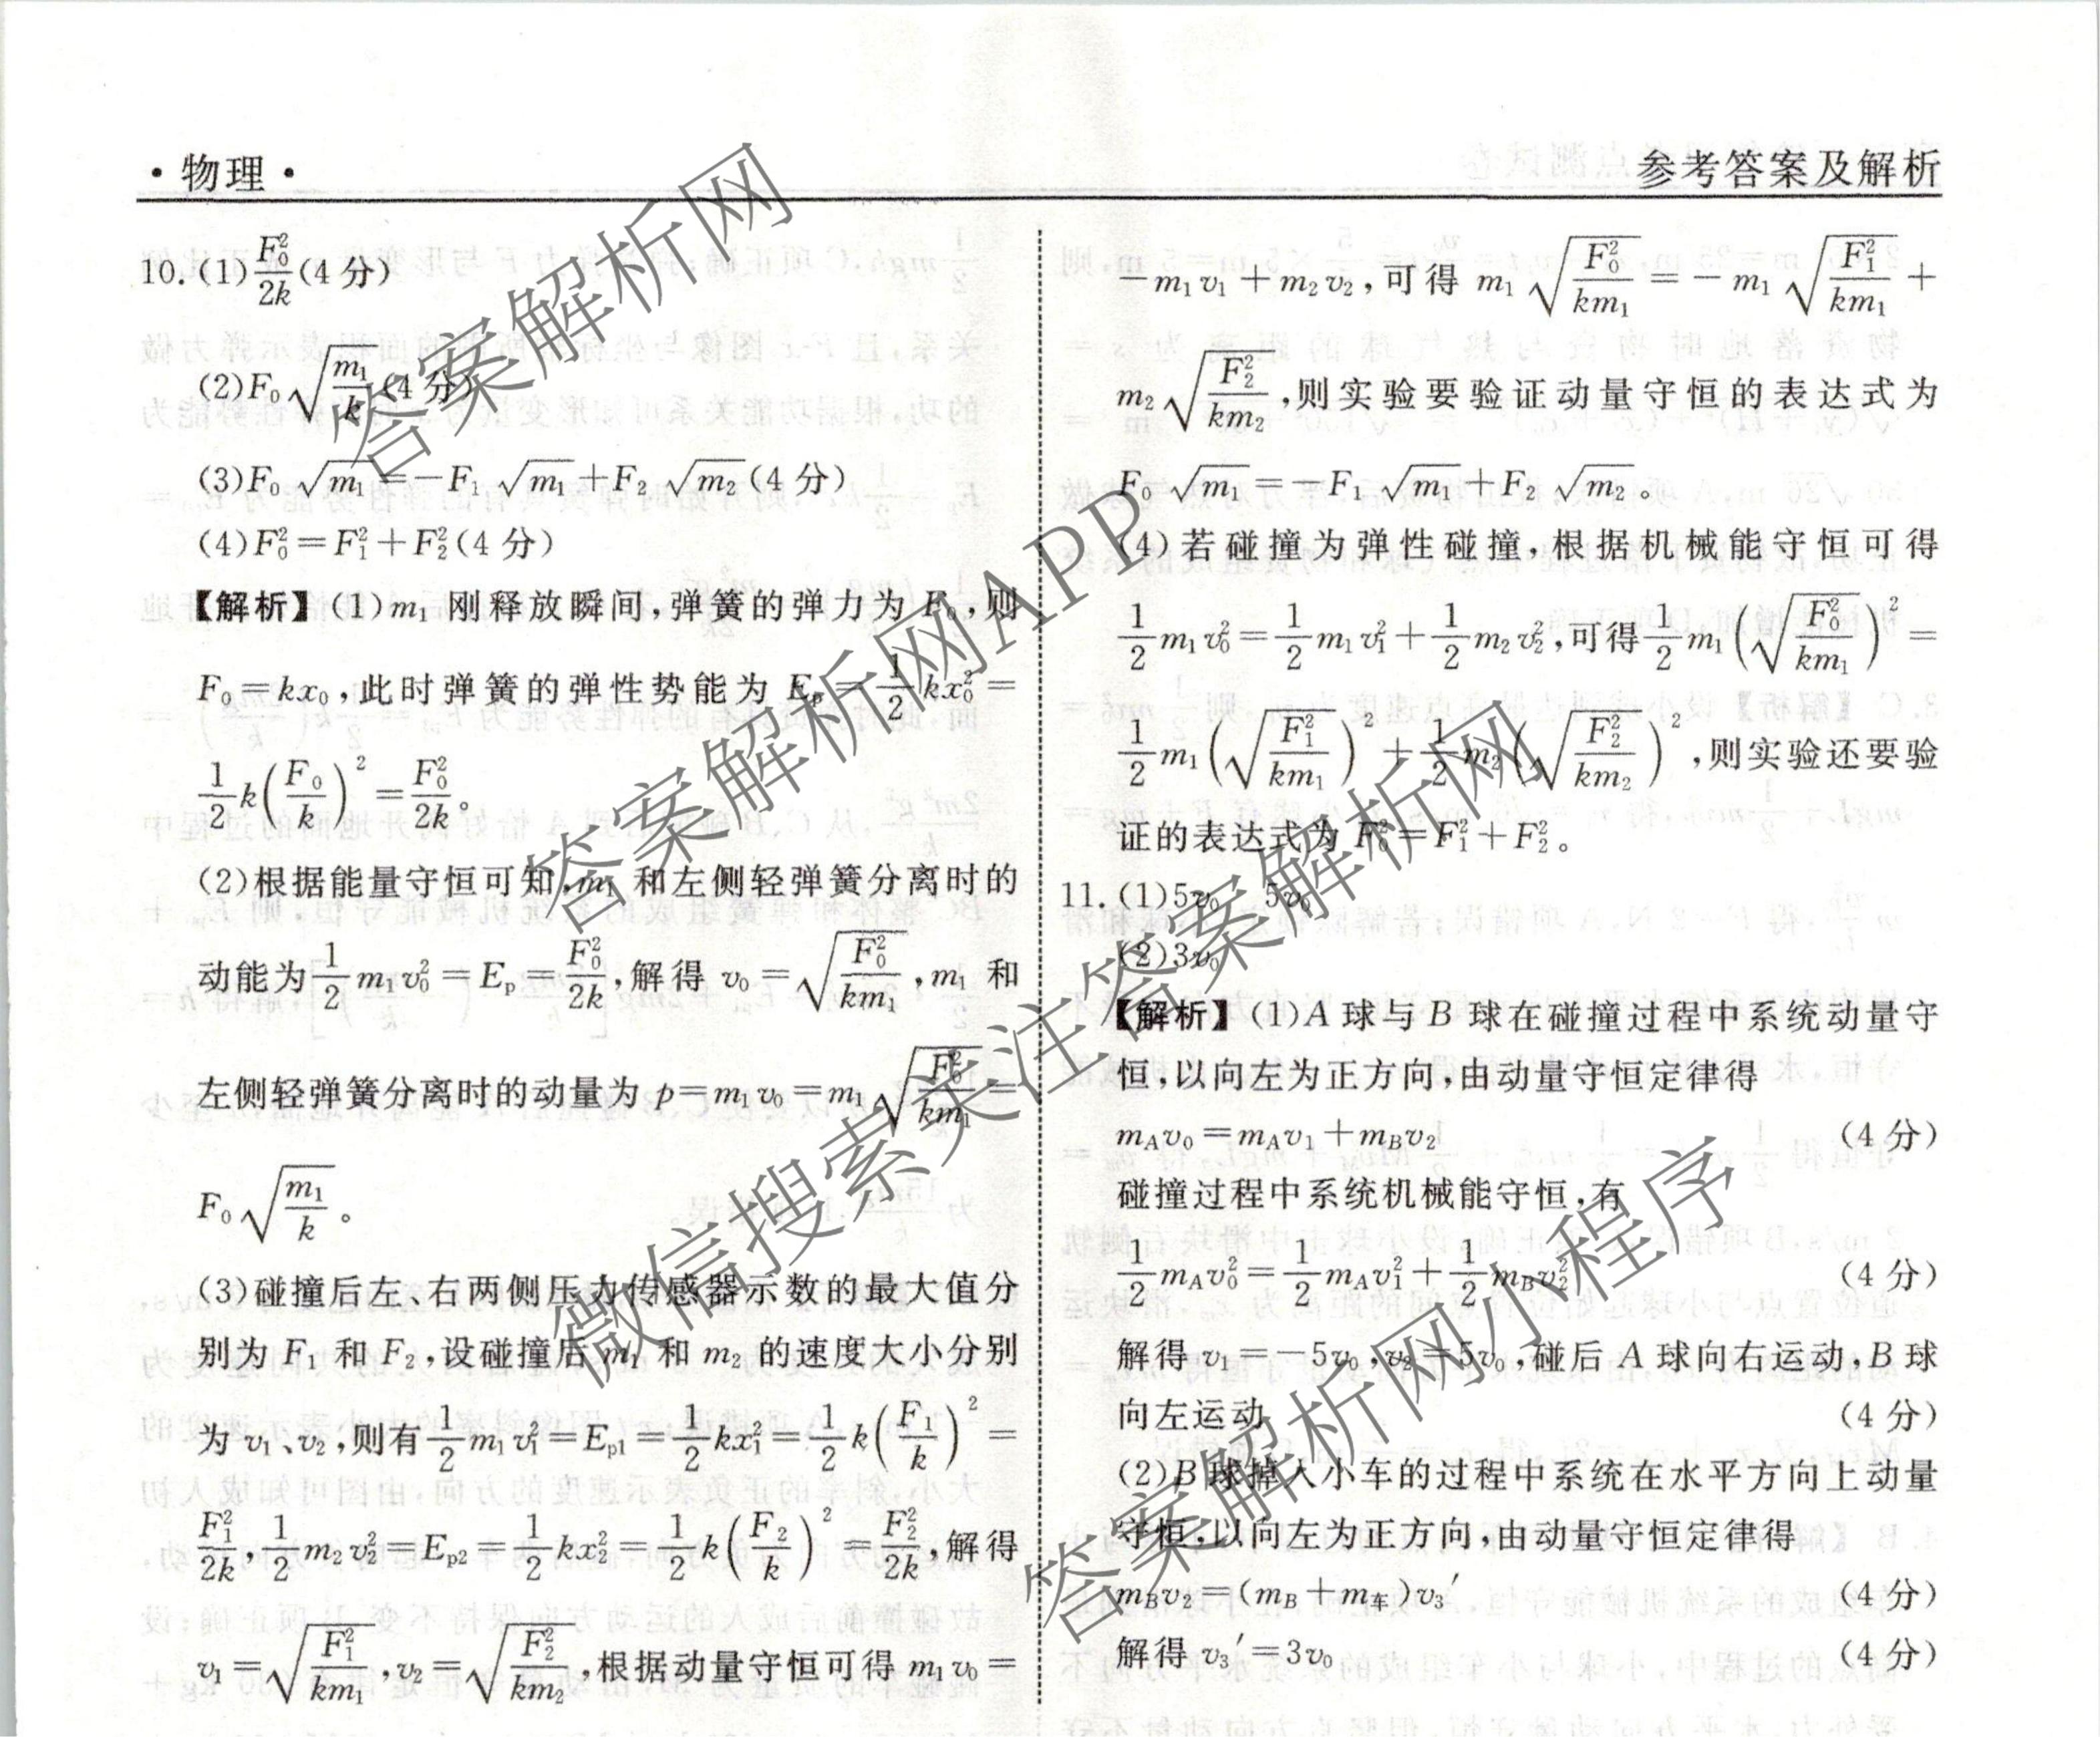 ·物理·
参考答案及解析
10.(1)F₀²/2k(4分)
(2)F₀√(m₁/k)(4分)
(3)F₀√m₁=-F₁√m₁+F₂√m₂(4分)
(4)F₀²=F₁²+F₂²(4分)
【解析】(1)m₁刚释放瞬间,弹簧的弹力为F₀,则
F₀=kx₀,此时弹簧的弹性势能为Eₚ=1/2kx₀²=
1/2k(F₀/k)²=F₀²/2k。
(2)根据能量守恒可知,m₁和左侧轻弹簧分离时的
动能为1/2m₁v₀²=Eₚ=F₀²/2k,解得v₀=√(F₀²/km₁),m₁和
左侧轻弹簧分离时的动量为p=m₁v₀=m₁√(F₀²/km₁)=
F₀√(m₁/k)。
(3)碰撞后左、右两侧压力传感器示数的最大值分
别为F₁和F₂,设碰撞后m₁和m₂的速度大小分别
为v₁、v₂,则有1/2m₁v₁²=Eₚ₁=1/2kx₁²=1/2k(F₁/k)²=
F₁²/2k,1/2m₂v₂²=Eₚ₂=1/2kx₂²=1/2k(F₂/k)²=F₂²/2k,解得
v₁=√(F₁²/km₁),v₂=√(F₂²/km₂),根据动量守恒可得m₁v₀=
-m₁v₁+m₂v₂,可得m₁√(F₀²/km₁)=-m₁√(F₁²/km₁)+
m₂√(F₂²/km₂),则实验要验证动量守恒的表达式为
F₀√m₁=-F₁√m₁+F₂√m₂。
(4)若碰撞为弹性碰撞,根据机械能守恒可得
1/2m₁v₀²=1/2m₁v₁²+1/2m₂v₂²,可得1/2m₁(√(F₀²/km₁))²=
1/2m₁(√(F₁²/km₁))²+1/2m₂(√(F₂²/km₂))²,则实验还要验
证的表达式为F₀²=F₁²+F₂²。
11.(1)5v₀ 5v₀
(2)3v₀
【解析】(1)A球与B球在碰撞过程中系统动量守
恒,以向左为正方向,由动量守恒定律得
m_Av₀=m_Av₁+m_Bv₂ (4分)
碰撞过程中系统机械能守恒,有
1/2m_Av₀²=1/2m_Av₁²+1/2m_Bv₂² (4分)
解得v₁=-5v₀,v₂=5v₀,碰后A球向右运动,B球
向左运动 (4分)
(2)B球掉入小车的过程中系统在水平方向上动量
守恒,以向左为正方向,由动量守恒定律得
m_Bv₂=(m_B+m车)v₃′ (4分)
解得v₃′=3v₀ (4分)
答案解析网
答案解析网APP
微信搜索关注答案解析网
答案解析网小程序